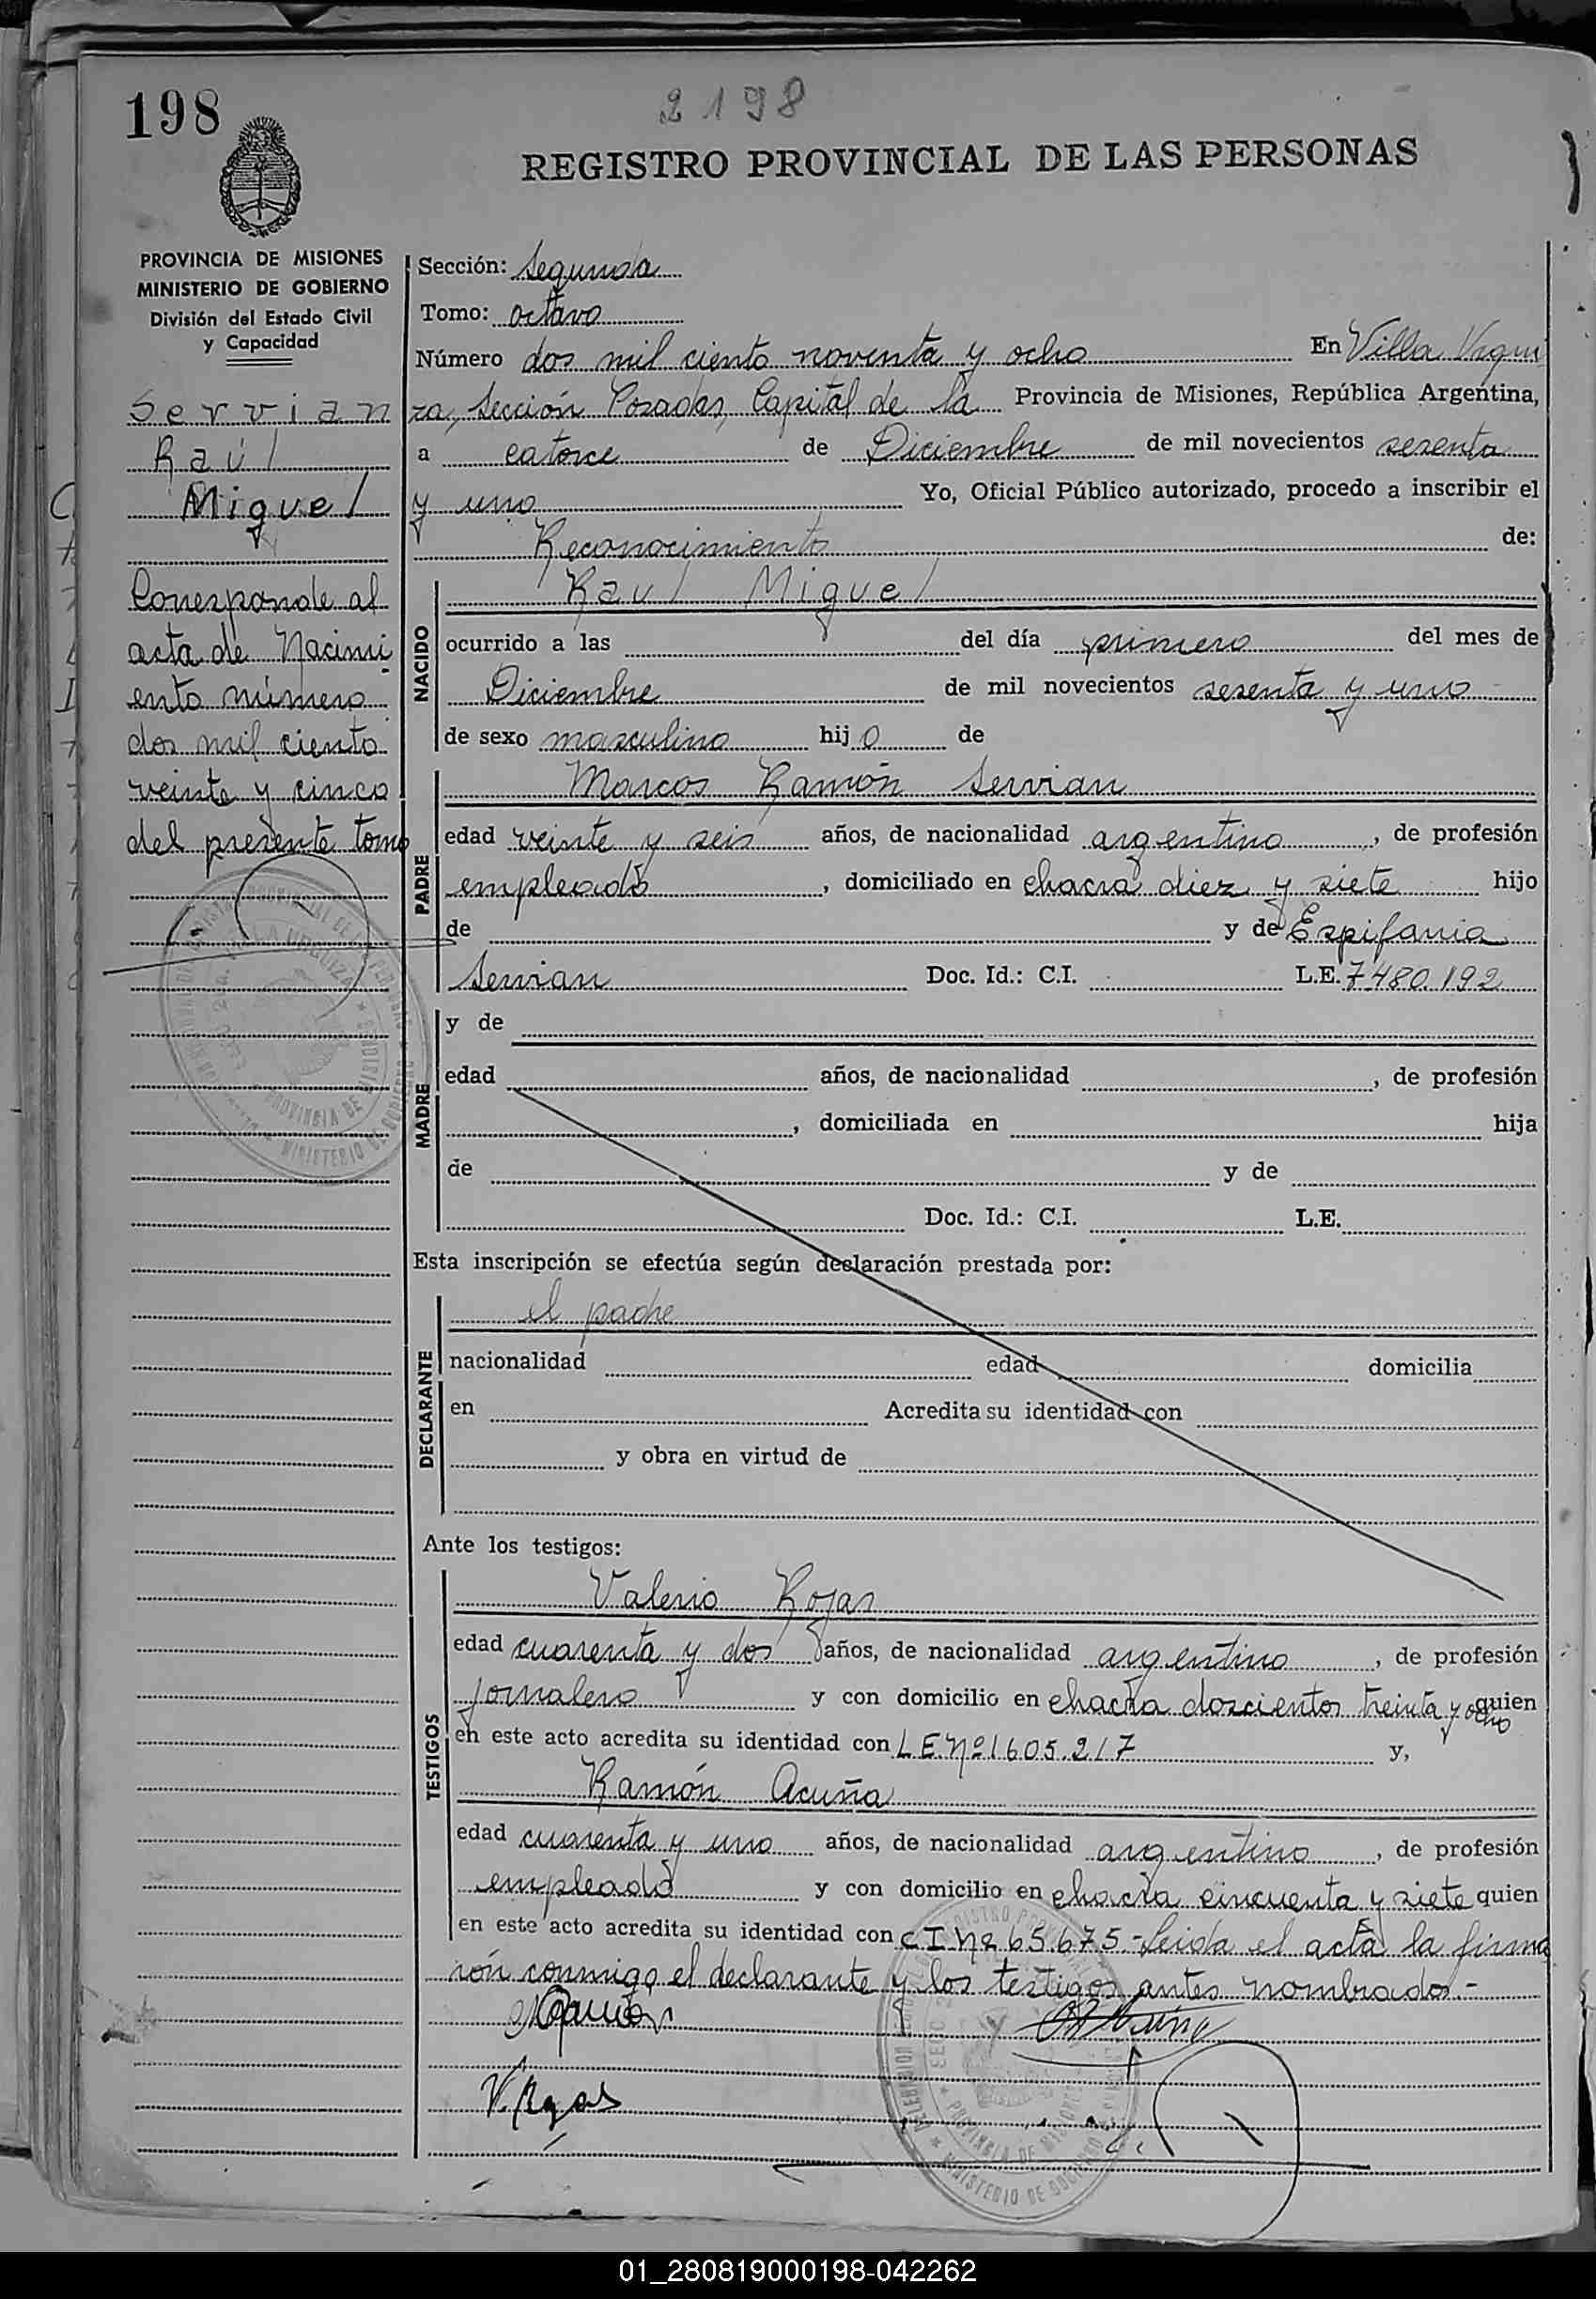 198
2198
REGISTRO PROVINCIAL DE LAS PERSONAS
PROVINCIA DE MISIONES
MINISTERIO DE GOBIERNO
División del Estado Civil
y Capacidad
Servian
Raúl
Miguel
Corresponde al
acta de Nacimi
ento número
dos mil ciento
veinte y cinco
del presente tomo
Sección: Segunda
Tomo: octavo
Número dos mil ciento noventa y ocho En Villa Urqui
za, Sección Posadas, Capital de la Provincia de Misiones, República Argentina,
a catorce de Diciembre de mil novecientos sesenta
y uno Yo, Oficial Público autorizado, procedo a inscribir el
Reconocimiento de:
NACIDO
Raul Miguel
ocurrido a las del día primero del mes de
Diciembre de mil novecientos sesenta y uno
de sexo masculino hijo de
PADRE
Marcos Ramón Servian
edad veinte y seis años, de nacionalidad argentino, de profesión
empleado, domiciliado en chacra diez y siete hijo
de y de Espifania
Servian Doc. Id.: C.I. L.E. 7.480.192
MADRE
y de
edad años, de nacionalidad , de profesión
, domiciliada en hija
de y de
Doc. Id.: C.I. L.E.
Esta inscripción se efectúa según declaración prestada por:
DECLARANTE
el padre
nacionalidad edad domicilia
en Acredita su identidad con
y obra en virtud de
Ante los testigos:
TESTIGOS
Valerio Rojas
edad cuarenta y dos años, de nacionalidad argentino, de profesión
jornalero y con domicilio en chacra doscientos treinta y ocho quien
en este acto acredita su identidad con L E. Nº 1605.217 y,
Ramón Acuña
edad cuarenta y uno años, de nacionalidad argentino, de profesión
empleado y con domicilio en chacra cincuenta y siete quien
en este acto acredita su identidad con C I Nº 65.675 - Leida el acta la firma
rón conmigo el declarante y los testigos antes nombrados.-
V. Rojas
01_280819000198-042262